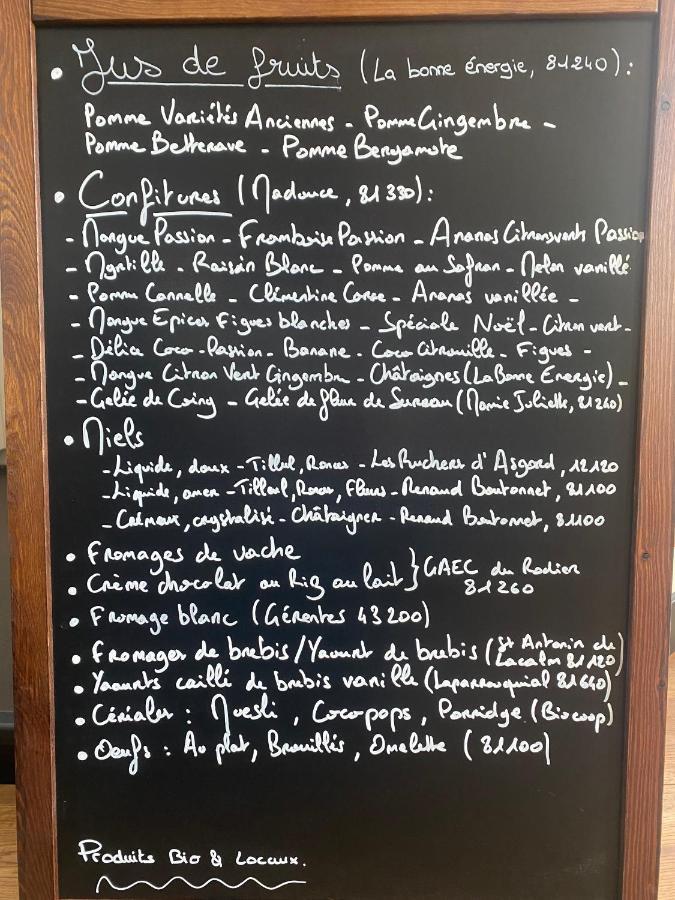 • Jus de fruits (La bonne énergie, 81240) :
Pomme Variétés Anciennes - Pomme Gingembre -
Pomme Betterave - Pomme Bergamote
• Confitures (Nadouce, 81330) :
- Mangue Passion - Framboise Passion - Ananas Citrons verts Passion
- Myrtille - Raisin Blanc - Pomme au Safran - Melon vanillé
- Pomme Cannelle - Clémentine Corse - Ananas vanillée -
- Mangue Epices Figues blanches - Spéciale Noël - Citron vert -
- Délice Coco-Passion - Banane - Coco Citrouille - Figues -
- Mangue Citron Vert Gingembre - Châtaignes (La Bonne Énergie) -
- Gelée de Coing - Gelée de fleur de Sureau (Mamie Juliette, 81260)
• Miels
- Liquide, doux - Tilleul, Ronces - Les Ruchers d'Asgard, 12120
- Liquide, amer - Tilleul, Ronces, Fleurs - Renaud Boutonnet, 81100
- Crémeux, crystalisé - Châtaignier - Renaud Boutonnet, 81100
• Fromages de vache
• Crème chocolat ou Riz au lait } GAEC du Rodier 81260
• Fromage blanc (Gérentes 43200)
• Fromages de brebis / Yaourt de brebis (St Antonin de Lacalm 81120)
• Yaourts caillé de brebis vanille (Laparrouquial 81640)
• Céréales : Muesli, Cocopops, Porridge (Biocoop)
• Oeufs : Au plat, Brouillés, Omelette (81100)
Produits Bio & Locaux.